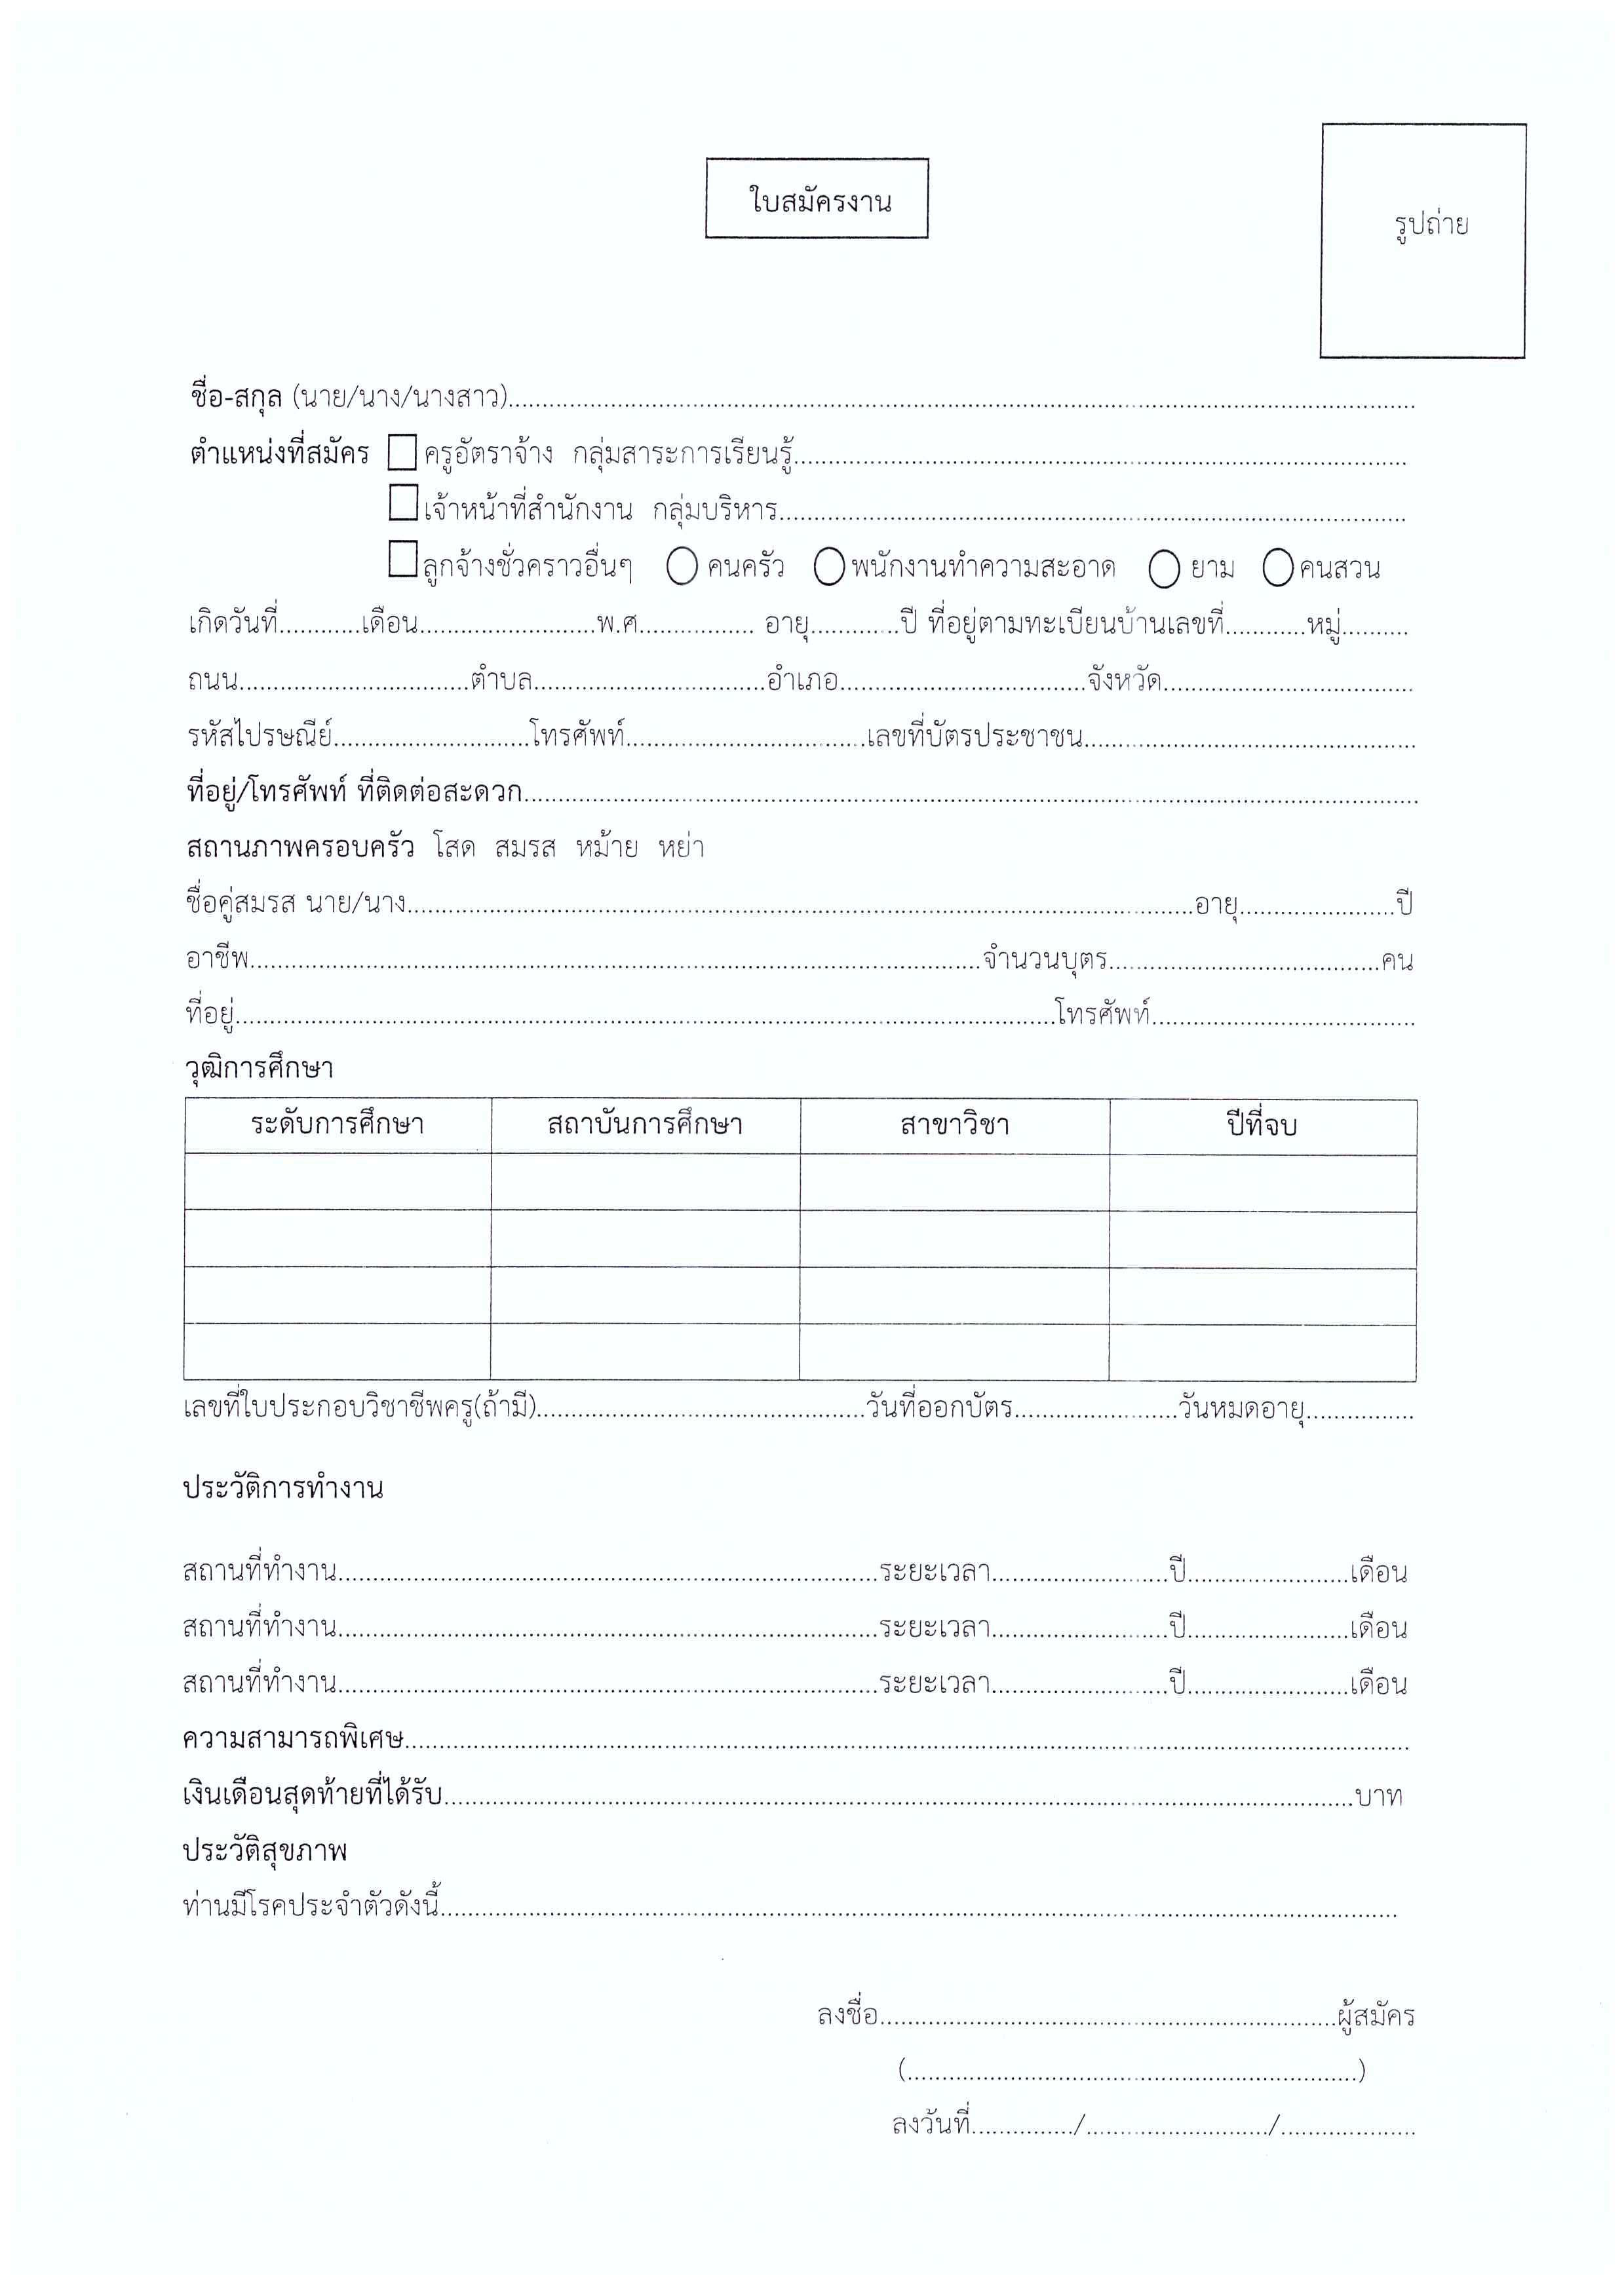 ใบสมัครงาน
รูปถ่าย
ชื่อ-สกุล (นาย/นาง/นางสาว)....................................................................................................
ตำแหน่งที่สมัคร ครูอัตราจ้าง กลุ่มสาระการเรียนรู้..............................................................
เจ้าหน้าที่สำนักงาน กลุ่มบริหาร..............................................................
ลูกจ้างชั่วคราวอื่นๆ คนครัว พนักงานทำความสะอาด ยาม คนสวน
เกิดวันที่............เดือน..........................พ.ศ................. อายุ.............ปี ที่อยู่ตามทะเบียนบ้านเลขที่............หมู่..........
ถนน..................................ตำบล..................................อำเภอ....................................จังหวัด.....................................
รหัสไปรษณีย์.............................โทรศัพท์...................................เลขที่บัตรประชาชน.................................................
ที่อยู่/โทรศัพท์ ที่ติดต่อสะดวก....................................................................................................
สถานภาพครอบครัว โสด สมรส หม้าย หย่า
ชื่อคู่สมรส นาย/นาง....................................................................................................อายุ.......................ปี
อาชีพ....................................................................................................จำนวนบุตร........................................คน
ที่อยู่....................................................................................................โทรศัพท์.......................................
วุฒิการศึกษา
ระดับการศึกษา สถาบันการศึกษา สาขาวิชา ปีที่จบ
เลขที่ใบประกอบวิชาชีพครู(ถ้ามี)................................................วันที่ออกบัตร........................วันหมดอายุ................
ประวัติการทำงาน
สถานที่ทำงาน...............................................................................ระยะเวลา..........................ปี........................เดือน
สถานที่ทำงาน...............................................................................ระยะเวลา..........................ปี........................เดือน
สถานที่ทำงาน...............................................................................ระยะเวลา..........................ปี........................เดือน
ความสามารถพิเศษ....................................................................................................
เงินเดือนสุดท้ายที่ได้รับ....................................................................................................บาท
ประวัติสุขภาพ
ท่านมีโรคประจำตัวดังนี้....................................................................................................
ลงชื่อ...................................................................ผู้สมัคร
(..................................................................)
ลงวันที่.............../.........................../....................